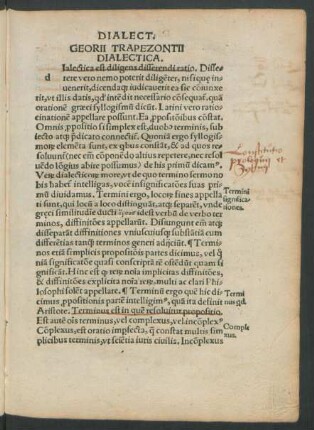 DIALECT.
GEORII TRAPEZONTII
DIALECTICA.
Ialectica est diligens disserendi ratio. Disse
d rere vero nemo poterit diligēter, nisi quę in
uenerit, dicendaq; iudicauerit ea sic cōiunxe
rit, vt illis datis, qd' inde dici necessario cōsequat̃. quā
orationē gręci syllogismū dicūt. Latini vero ratioci
nationē appellare possunt. Ea ꝓpositiōibus cōstat.
Omnis ꝓpositio si simplex est, duob9 terminis, sub
iecto atq; p̃dicato connectit̃. Quoniā ergo syllogis
morꝝ elemēta sunt, ex qbus constāt, & ad quos re
soluuns (nec em̄ cōponēdo altius repetere, nec resol
uēdo lōgius abire possumus) de his primū dicam9.
Vetꝝ dialecticorꝝ more, vt de quo termino sermo no
bis habet̃ intelligas, voce īsignificatiōes suas pri
mū diuidamus. Termini ergo, locorꝝ fines appella
ti sunt, qui loca a loco distinguūt, atq; separāt, vnde
gręci similitudīe ducti ὅρους idest verbū de verbo ter
minos, diffinitōes appellarūt. Disiungunt em̄ atq;
disseparāt diffinitiones vniuscuiusq; substātiā eum
differētias tanq̃ terminos generi adijciūt. ¶ Termi
nos etiā simplicis propositōis partes dicimus, vel q
niā significatōe quasi conscriptā rē osidēdūt quam si
gnificāt. Hinc est qd' rerꝝ noīa implicitas diffinitōes,
& diffinitōes explicita noīa rerꝝ, multi ac clari Phi
losophi solēt appellare. ¶ Terminū ergo quē hic di
cimus, ꝓpositionis partē intelligim9, quā ita definit
Aristote. Terminus est in quē resoluitur propositio.
Est autē oīs terminus, vel complexus, vel incōplex9.
Cōplexus, est oratio imꝑfecta, q̃ constat multis sim
plicibus terminis, vt scientia iuris ciuilis. Incōplexus
Termini
significa-
tiones.
Termi
nus qd.
Comple
xus.